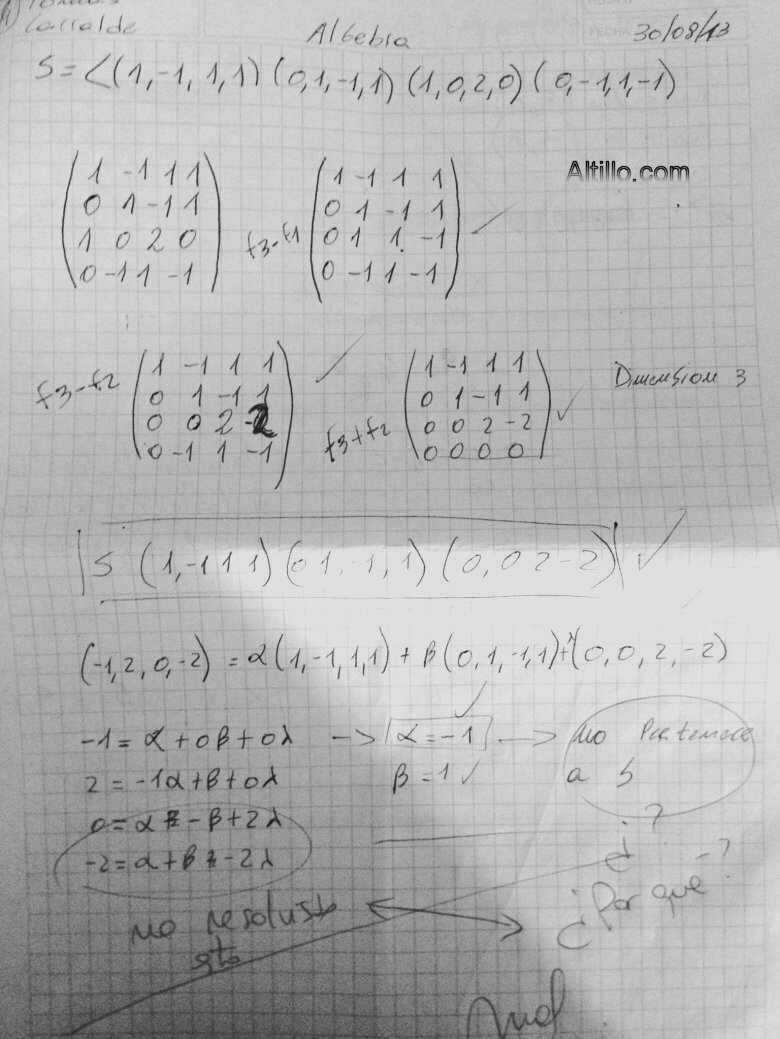 Carralde
Algebra
30/08/13
FECHA
S = <(1,-1,1,1) (0,1,-1,1) (1,0,2,0) (0,-1,1,-1)
Altillo.com
1 -1 1 1
0 1 -1 1
1 0 2 0
0 -1 1 -1
f3-f1
1 -1 1 1
0 1 -1 1
0 1 1 -1
0 -1 1 -1
f3-f2
1 -1 1 1
0 1 -1 1
0 0 2 -2
0 -1 1 -1
f3+f2
1 -1 1 1
0 1 -1 1
0 0 2 -2
0 0 0 0
Dimension 3
S (1,-1 1 1) (0 1,-1,1) (0,0 2 -2)
(-1,2,0,-2) = α(1,-1,1,1) + β(0,1,-1,1)+λ(0,0,2,-2)
-1 = α + 0β + 0λ -> α = -1 -> no Pertenece
2 = -1α + β + 0λ β = 1 a S
0 = α - β + 2λ ¿?
-2 = α + β - 2λ
no resolviste ¿Por qué?
esto
Mal